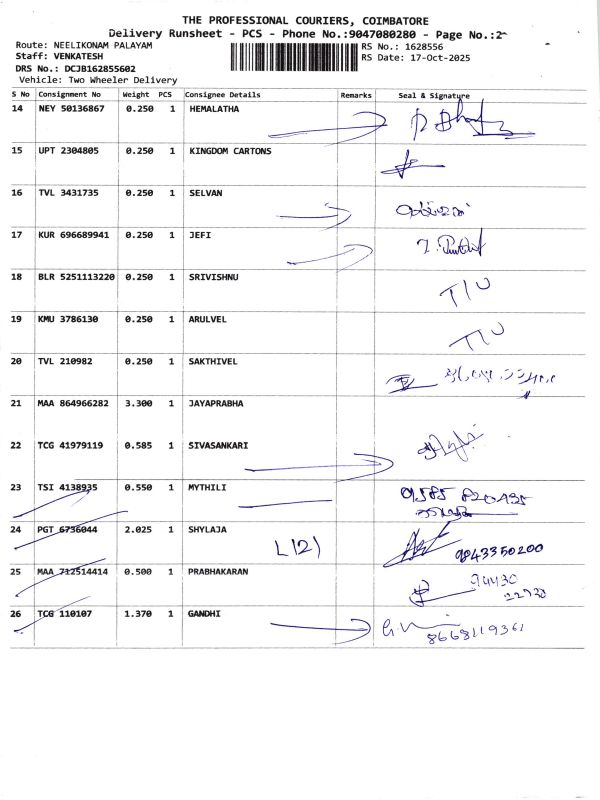 THE PROFESSIONAL COURIERS, COIMBATORE
Delivery Runsheet - PCS - Phone No.:9047080280 - Page No.:2
Route: NEELIKONAM PALAYAM
RS No.: 1628556
Staff: VENKATESH
RS Date: 17-Oct-2025
DRS No.: DCJB162855602
Vehicle: Two Wheeler Delivery
S No Consignment No Weight PCS Consignee Details Remarks Seal & Signature
14 NEY 50136867 0.250 1 HEMALATHA
15 UPT 2304805 0.250 1 KINGDOM CARTONS
16 TVL 3431735 0.250 1 SELVAN
17 KUR 696689941 0.250 1 JEFI
18 BLR 5251113220 0.250 1 SRIVISHNU T/U
19 KMU 3786130 0.250 1 ARULVEL T/U
20 TVL 210982 0.250 1 SAKTHIVEL
21 MAA 864966282 3.300 1 JAYAPRABHA
22 TCG 41979119 0.585 1 SIVASANKARI
23 TSI 4138935 0.550 1 MYTHILI
24 PGT 6736044 2.025 1 SHYLAJA L(2) 9843350200
25 MAA 712514414 0.500 1 PRABHAKARAN 94430
22930
26 TCG 110107 1.370 1 GANDHI 8668119361